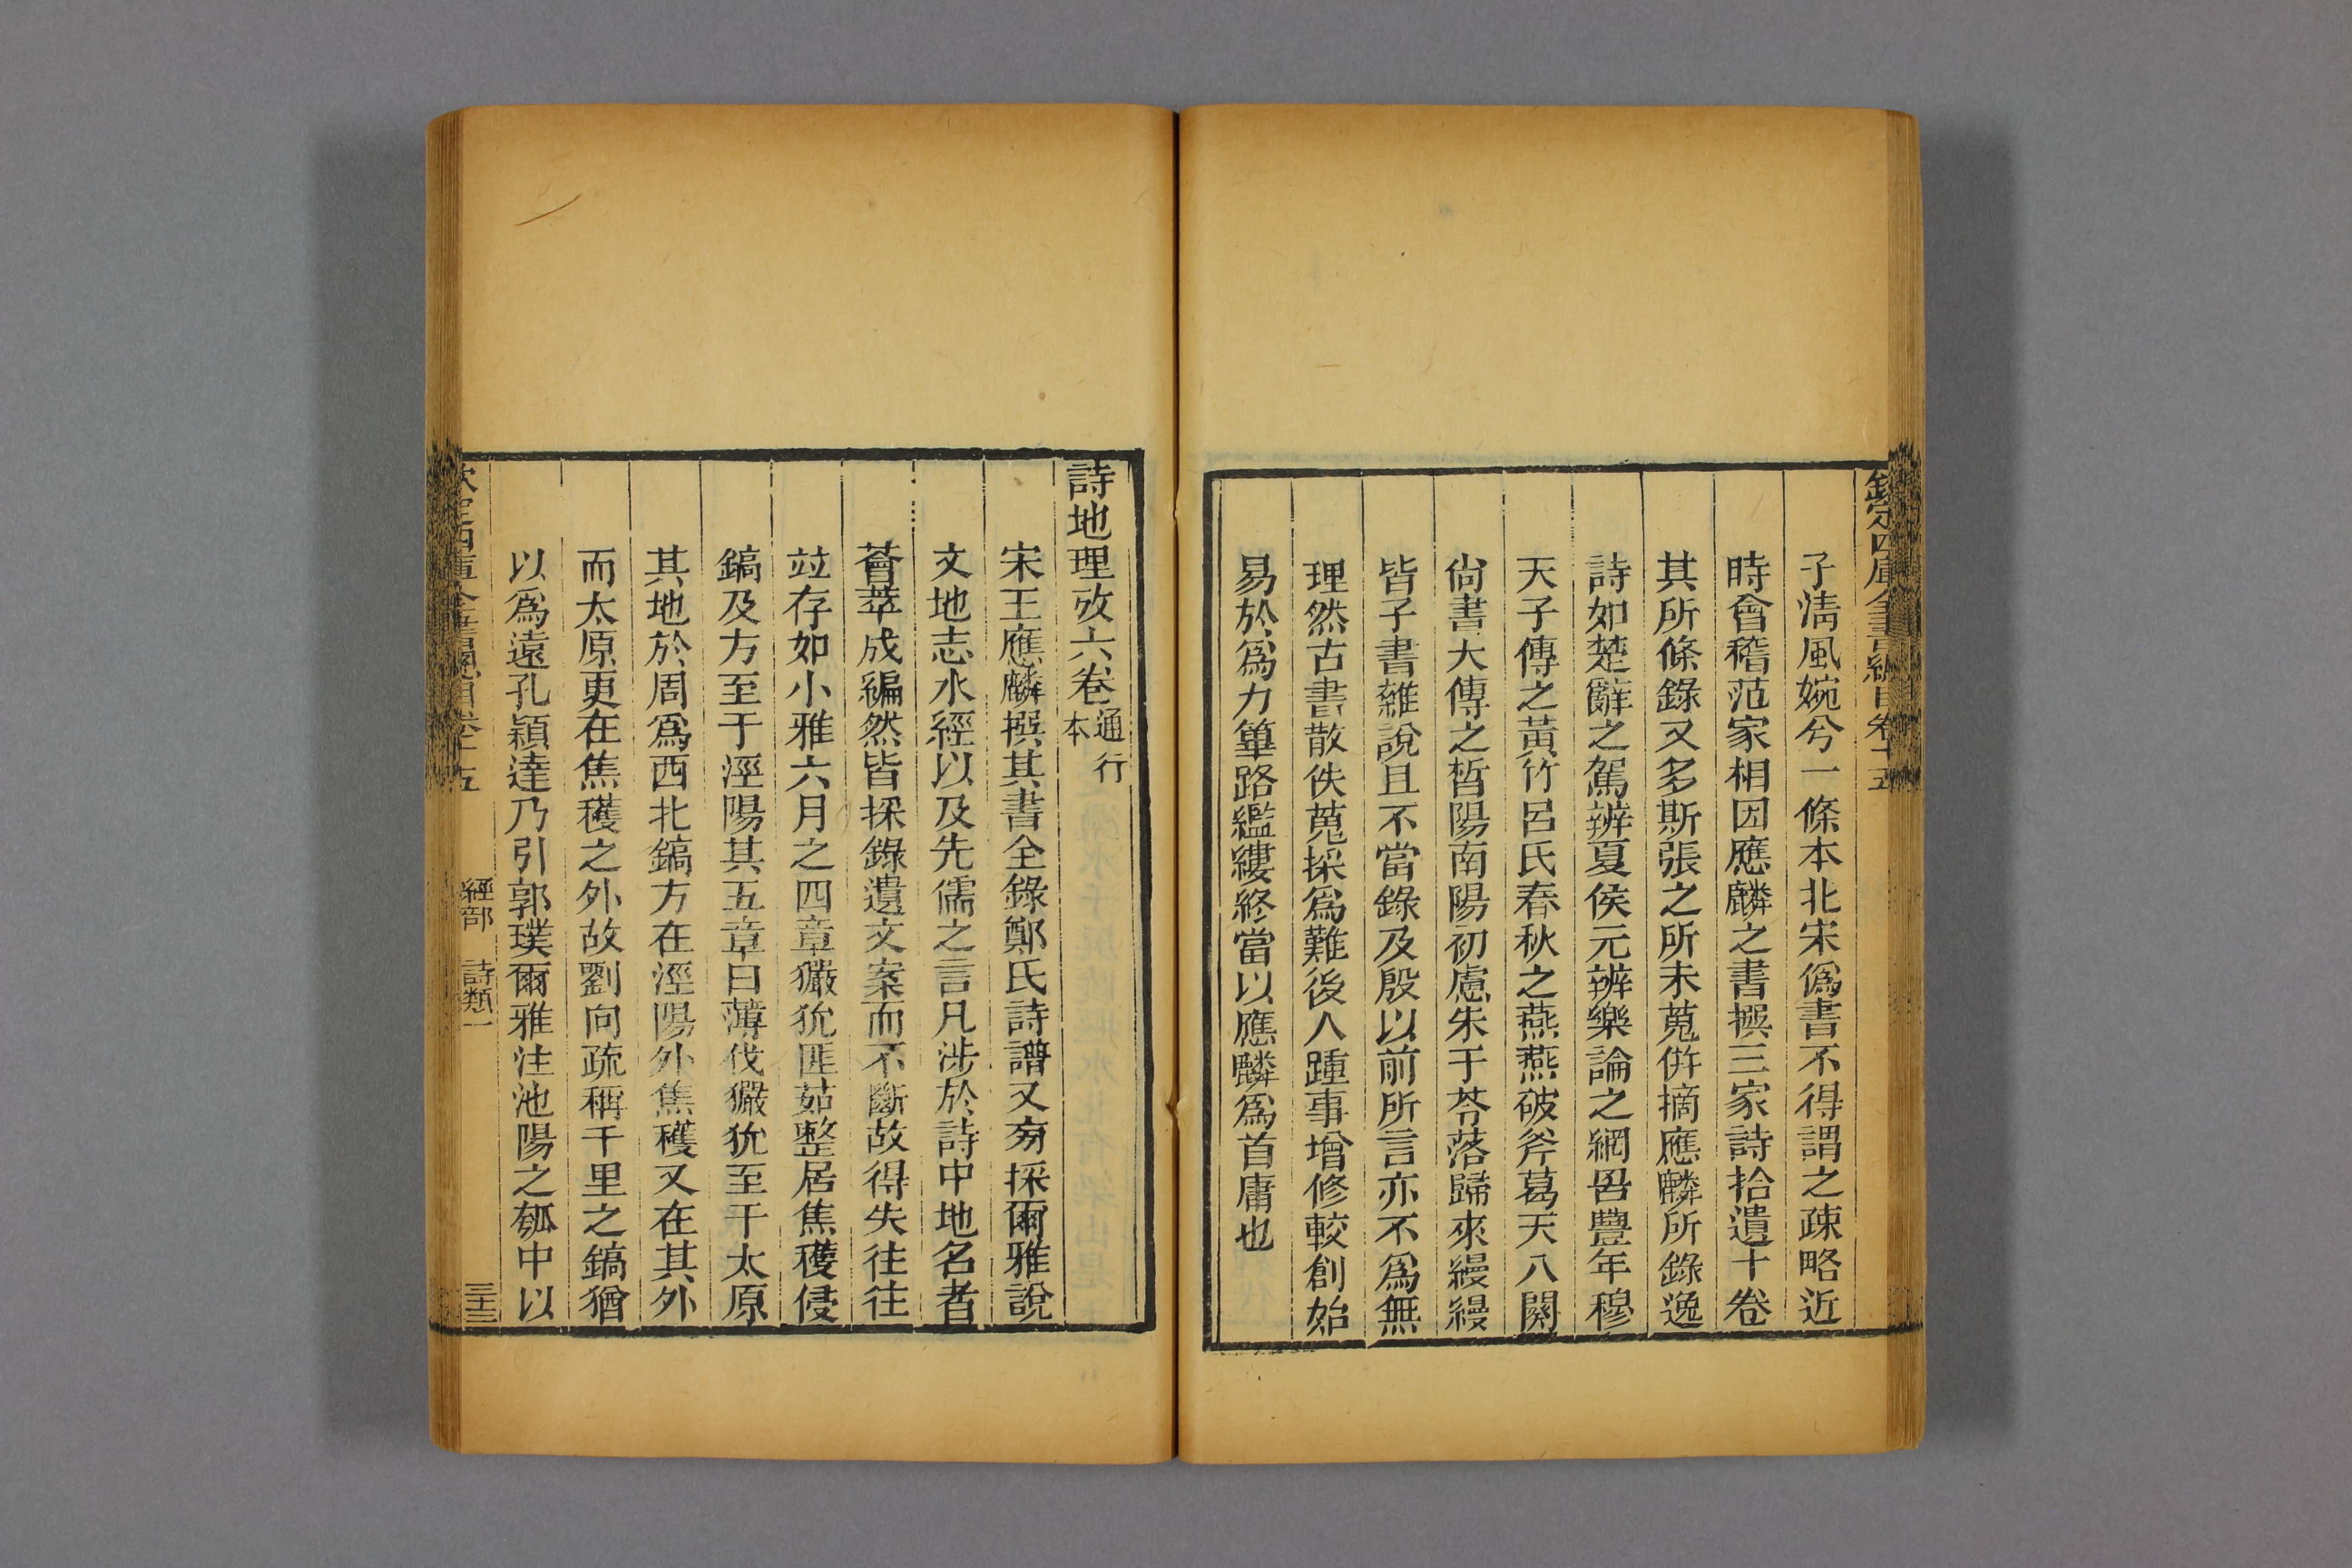 欽定四庫全書總目卷十五
子清風婉兮一條本北宋僞書不得謂之疎略近
時會稽范家相因應麟之書撰三家詩拾遺十卷
其所條錄又多斯張之所未蒐併摘應麟所錄逸
詩如楚辭之駕辨夏侯元辨樂論之網罟豐年穆
天子傳之黃竹呂氏春秋之燕燕破斧葛天八闋
尙書大傳之晳陽南陽初慮朱于苓落歸來縵縵
皆子書雜說且不當錄及殷以前所言亦不爲無
理然古書散佚蒐採爲難後人踵事增修較創始
易於爲力篳路繿縷終當以應麟爲首庸也
詩地理攷六卷通行本
宋王應麟撰其書全錄鄭氏詩譜又旁採爾雅說
文地志水經以及先儒之言凡涉於詩中地名者
薈萃成編然皆採錄遺文案而不斷故得失往往
竝存如小雅六月之四章玁狁匪茹整居焦穫侵
鎬及方至于涇陽其五章曰薄伐玁狁至于太原
其地於周爲西北鎬方在涇陽外焦穫又在其外
而太原更在焦穫之外故劉向疏稱千里之鎬猶
以爲遠孔穎達乃引郭璞爾雅注池陽之瓠中以
欽定四庫全書總目卷十五 經部 詩類一 三十三